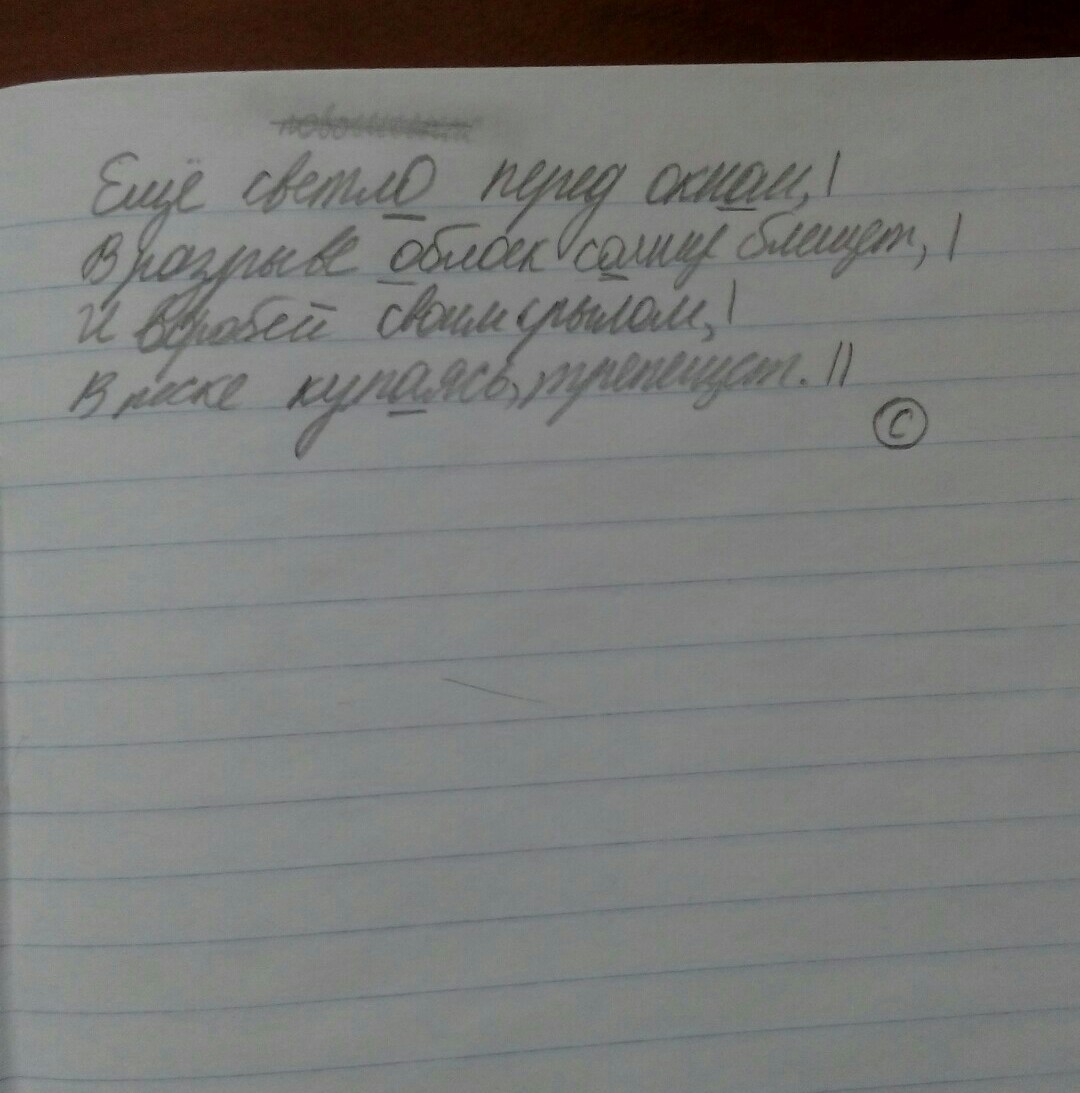 Ещё светло перед окном, |
В разрыве облоек солнце блещет, |
И воробей своим крылом, |
В песке купаясь, трепещет. ||
©